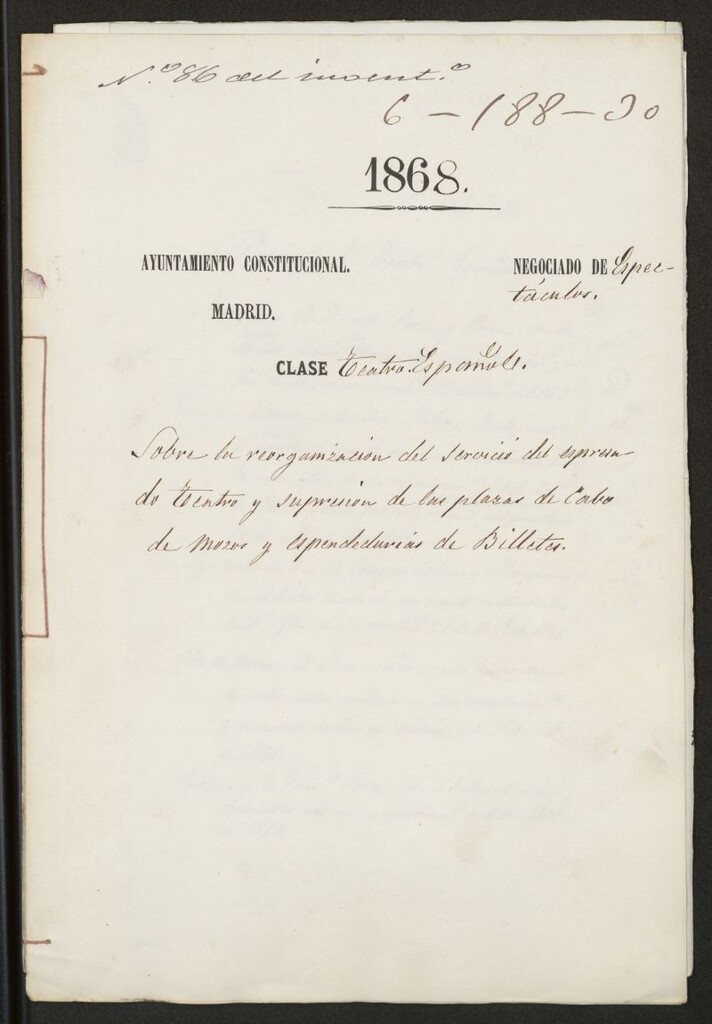 N.º 86 del invent.º
6-188-30
1868.
AYUNTAMIENTO CONSTITUCIONAL.
MADRID.
NEGOCIADO DE Espec-
táculos.
CLASE Teatro Español.
Sobre la reorganizacion del servicio del espresa-
do Teatro y supresion de las plazas de Cabo
de mozos y espendedurias de Billetes.